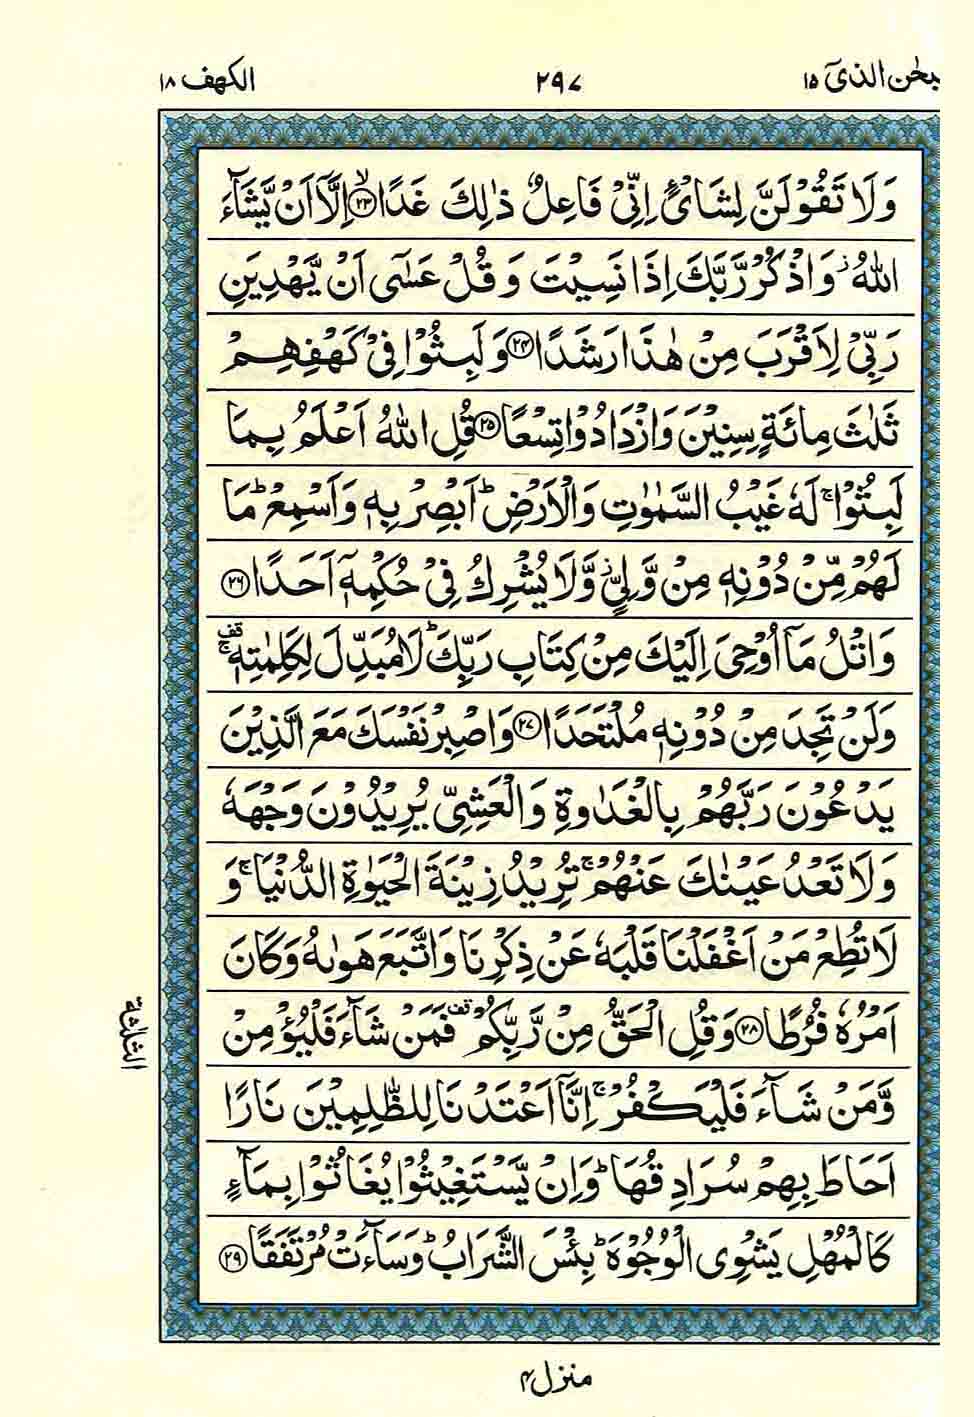 بحٰن الذیٓ ۱۵ ۲۹۷ الکهف ۱۸
وَلَا تَقُوْلَنَّ لِشَایْءٍ اِنِّیْ فَاعِلٌ ذٰلِكَ غَدًا ۙ‏﴿۲۳﴾ اِلَّاۤ اَنْ یَّشَآءَ
اللّٰهُ ؗ وَاذْكُرْ رَّبَّكَ اِذَا نَسِیْتَ وَ قُلْ عَسٰۤی اَنْ یَّهْدِیَنِ
رَبِّیْ لِاَقْرَبَ مِنْ هٰذَا رَشَدًا ﴿۲۴﴾ وَ لَبِثُوْا فِیْ كَهْفِهِمْ
ثَلٰثَ مِائَةٍ سِنِیْنَ وَ ازْدَادُوْا تِسْعًا ﴿۲۵﴾ قُلِ اللّٰهُ اَعْلَمُ بِمَا
لَبِثُوْا ۚ لَهٗ غَیْبُ السَّمٰوٰتِ وَ الْاَرْضِ ؕ اَبْصِرْ بِهٖ وَ اَسْمِعْ ؕ مَا
لَهُمْ مِّنْ دُوْنِهٖ مِنْ وَّلِیٍّ ؗ وَّ لَا یُشْرِكُ فِیْ حُكْمِهٖۤ اَحَدًا ﴿۲۶﴾
وَ اتْلُ مَاۤ اُوْحِیَ اِلَیْكَ مِنْ كِتَابِ رَبِّكَ ؕ لَا مُبَدِّلَ لِكَلِمٰتِهٖ ۚ قف
وَ لَنْ تَجِدَ مِنْ دُوْنِهٖ مُلْتَحَدًا ﴿۲۷﴾ وَ اصْبِرْ نَفْسَكَ مَعَ الَّذِیْنَ
یَدْعُوْنَ رَبَّهُمْ بِالْغَدٰوةِ وَ الْعَشِیِّ یُرِیْدُوْنَ وَجْهَهٗ
وَ لَا تَعْدُ عَیْنٰكَ عَنْهُمْ ۚ تُرِیْدُ زِیْنَةَ الْحَیٰوةِ الدُّنْیَا ۚ وَ
لَا تُطِعْ مَنْ اَغْفَلْنَا قَلْبَهٗ عَنْ ذِكْرِنَا وَ اتَّبَعَ هَوٰىهُ وَ كَانَ
اَمْرُهٗ فُرُطًا ﴿۲۸﴾ وَ قُلِ الْحَقُّ مِنْ رَّبِّكُمْ قف فَمَنْ شَآءَ فَلْیُؤْمِنْ
وَّ مَنْ شَآءَ فَلْیَكْفُرْ ۚ اِنَّاۤ اَعْتَدْنَا لِلظّٰلِمِیْنَ نَارًا
اَحَاطَ بِهِمْ سُرَادِقُهَا ؕ وَ اِنْ یَّسْتَغِیْثُوْا یُغَاثُوْا بِمَآءٍ
كَالْمُهْلِ یَشْوِی الْوُجُوْهَ ؕ بِئْسَ الشَّرَابُ ؕ وَ سَآءَتْ مُرْتَفَقًا ﴿۲۹﴾
الثلٰثة
منزل ۴